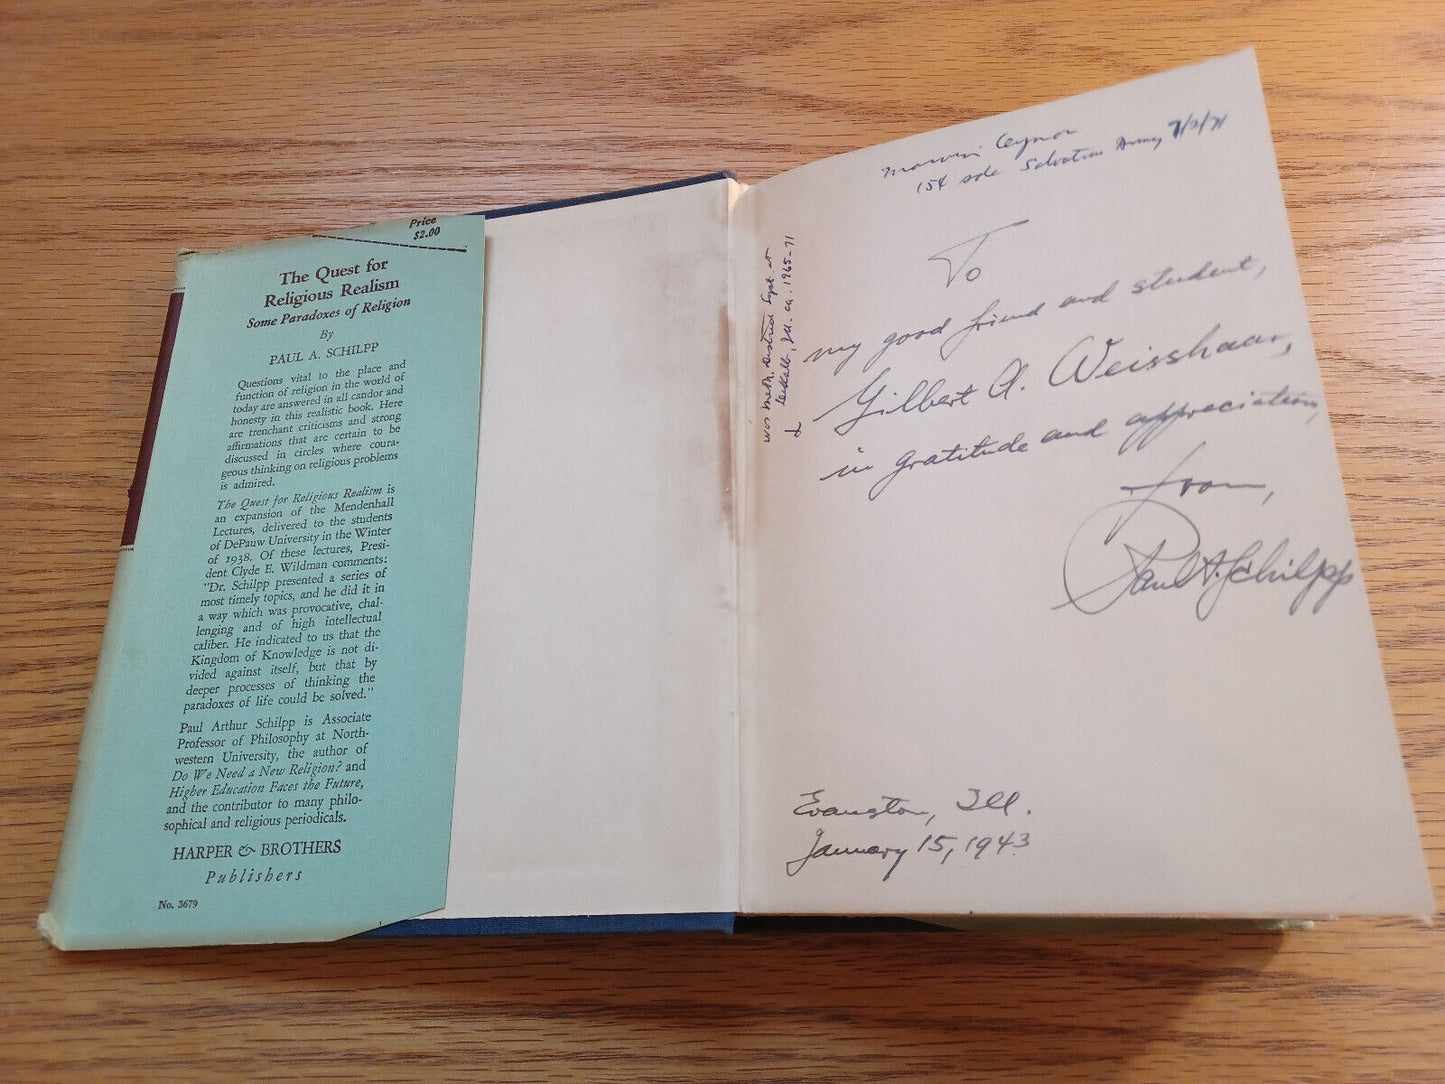 Price
$2.00
The Quest for
Religious Realism
Some Paradoxes of Religion
By
PAUL A. SCHILPP
Questions vital to the place and
function of religion in the world of
today are answered in all candor and
honesty in this realistic book. Here
are trenchant criticisms and strong
affirmations that are certain to be
discussed in circles where coura-
geous thinking on religious problems
is admired.
The Quest for Religious Realism is
an expansion of the Mendenhall
Lectures, delivered to the students
of DePauw University in the Winter
of 1938. Of these lectures, Presi-
dent Clyde E. Wildman comments:
"Dr. Schilpp presented a series of
most timely topics, and he did it in
a way which was provocative, chal-
lenging and of high intellectual
caliber. He indicated to us that the
Kingdom of Knowledge is not di-
vided against itself, but that by
deeper processes of thinking the
paradoxes of life could be solved."
Paul Arthur Schilpp is Associate
Professor of Philosophy at North-
western University, the author of
Do We Need a New Religion? and
Higher Education Faces the Future,
and the contributor to many philo-
sophical and religious periodicals.
HARPER & BROTHERS
Publishers
No. 3679
15¢ sale Salvation Army 7/2/71
To
my good friend and student,
Gilbert A. Weisshaar,
in gratitude and appreciation,
from,
Paul A. Schilpp
Evanston, Ill.
January 15, 1943
was Meth. District Supt. at
DeKalb, Ill. ca. 1965-71